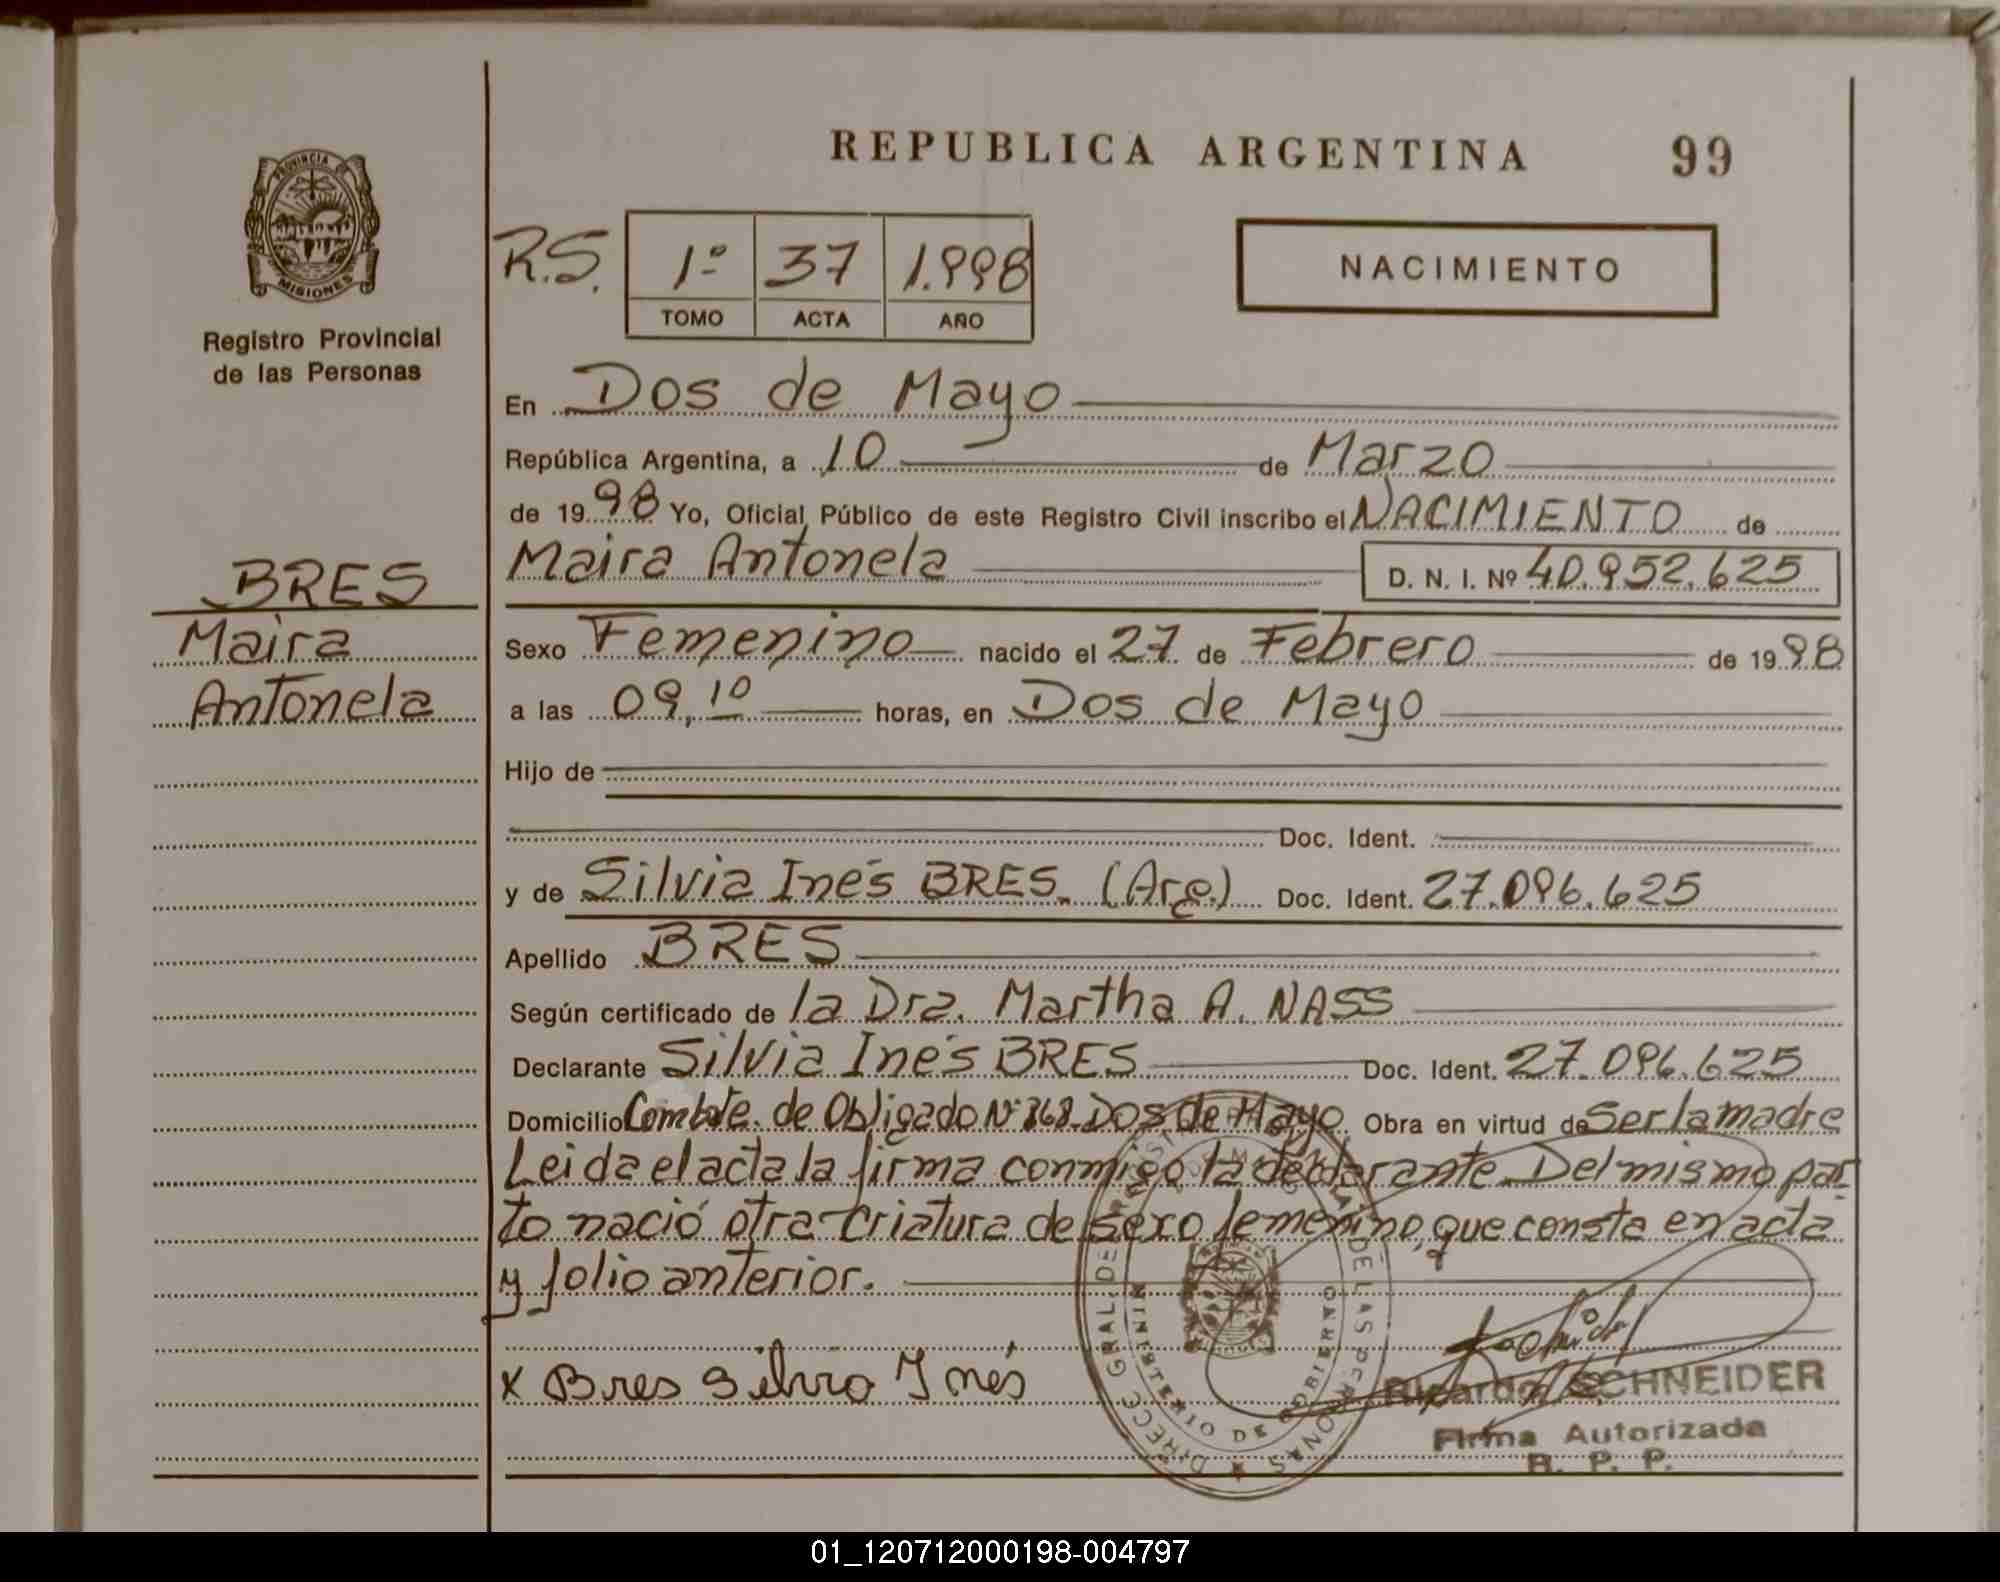 REPUBLICA ARGENTINA 99
PROVINCIA DE
MISIONES
Registro Provincial
de las Personas
R.S. 1º 37 1.998
TOMO ACTA AÑO
NACIMIENTO
En Dos de Mayo
República Argentina, a 10 de Marzo
de 1998 Yo, Oficial Público de este Registro Civil inscribo el NACIMIENTO de
Maira Antonela D. N. I. Nº 40.952.625
BRES
Maira
Antonela
Sexo Femenino nacido el 27 de Febrero de 1998
a las 09,10 horas, en Dos de Mayo
Hijo de
Doc. Ident.
y de Silvia Inés BRES. (Arg.) Doc. Ident. 27.096.625
Apellido BRES
Según certificado de la Dra. Martha A. NASS
Declarante Silvia Inés BRES Doc. Ident. 27.096.625
Domicilio Combte. de Obligado Nº 868-Dos de Mayo. Obra en virtud de Ser la madre
Leida el acta la firma conmigo la declarante. Del mismo par-
to nació otra criatura de sexo femenino, que consta en acta
y folio anterior.
x Bres Silvia Inés
DIRECC. GRAL. DE REGISTRO DE LAS PERSONAS
MINISTERIO DE GOBIERNO
Ricardo SCHNEIDER
Firma Autorizada
R. P. P.
01_120712000198-004797